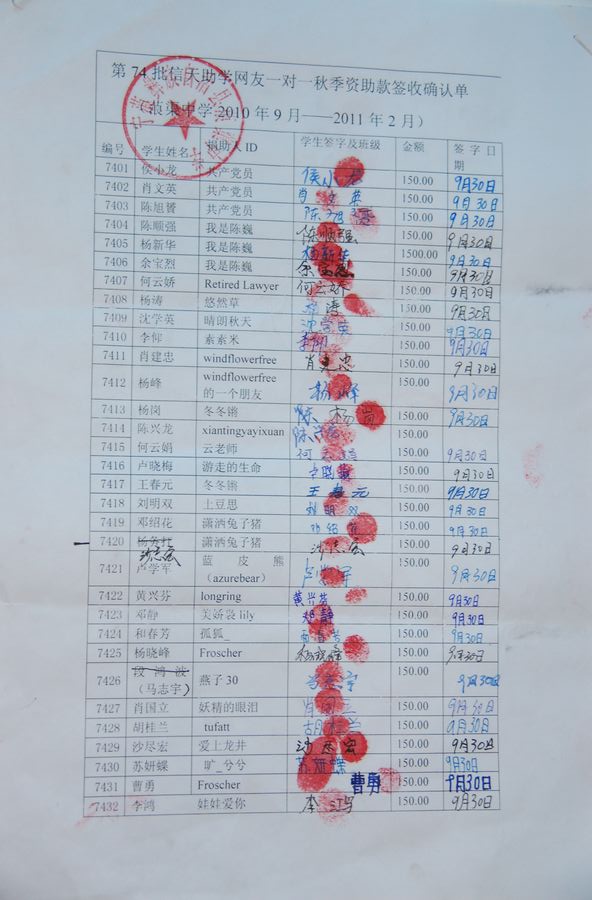 第 74 批信天助学网友一对一秋季资助款签收确认单
（蒗渠中学 2010 年 9 月——2011 年 2 月）
编号 学生姓名 捐助人 ID 学生签字及班级 金额 签字日期
7401 侯小龙 共产党员 侯小龙 150.00 9月30日
7402 肖文英 共产党员 肖文英 150.00 9月30日
7403 陈旭赟 共产党员 陈旭 150.00 9月30日
7404 陈顺强 我是陈巍 陈顺强 150.00 9月30日
7405 杨新华 我是陈巍 杨新华 1500.00 9月30日
7406 余宝烈 我是陈巍 余宝烈 150.00 9月30日
7407 何云娇 Retired Lawyer 何云娇 150.00 9月30日
7408 杨涛 悠然草 涛 150.00 9月30日
7409 沈学英 晴朗秋天 沈学英 150.00 9月30日
7410 李仰 素素米 李仰 150.00 9月30日
7411 肖建忠 windflowerfree 肖建忠 150.00 9月30日
7412 杨峰 windflowerfree 的一个朋友 杨峰 150.00 9月30日
7413 杨岗 冬冬锵 杨岗 150.00 9月30日
7414 陈兴龙 xiantingyayixuan 陈兴龙 150.00
7415 何云娟 云老师 何云娟 150.00 9月30日
7416 卢晓梅 游走的生命 卢晓梅 150.00 9月30日
7417 王春元 冬冬锵 王春元 150.00 9月30日
7418 刘明双 土豆思 刘明双 150.00 9月30日
7419 邓绍花 潇洒兔子猪 邓绍花 150.00 9月30日
7420 沙志宏 潇洒兔子猪 沙志宏 150.00 9月30日
7421 卢学军 蓝皮熊（azurebear） 卢学军 150.00 9月30日
7422 黄兴芬 longring 黄兴芬 150.00 9月30日
7423 邓静 美娇袅 lily 邓静 150.00 9月30日
7424 和春芳 孤狐_ 和春芳 150.00 9月30日
7425 杨晓峰 Froscher 杨晓峰 150.00 9月30日
7426 段鸿波（马志宇） 燕子 30 马志宇 150.00 9月30日
7427 肖国立 妖精的眼泪 肖国立 150.00 9月30日
7428 胡桂兰 tufatt 胡桂兰 150.00 9月30日
7429 沙尽宏 爱上龙井 沙尽宏 150.00 9月30日
7430 苏妍蝶 旷_兮兮 苏妍蝶 150.00 9月30日
7431 曹勇 Froscher 曹勇 150.00 9月30日
7432 李鸿 娃娃爱你 李鸿 150.00 9月30日